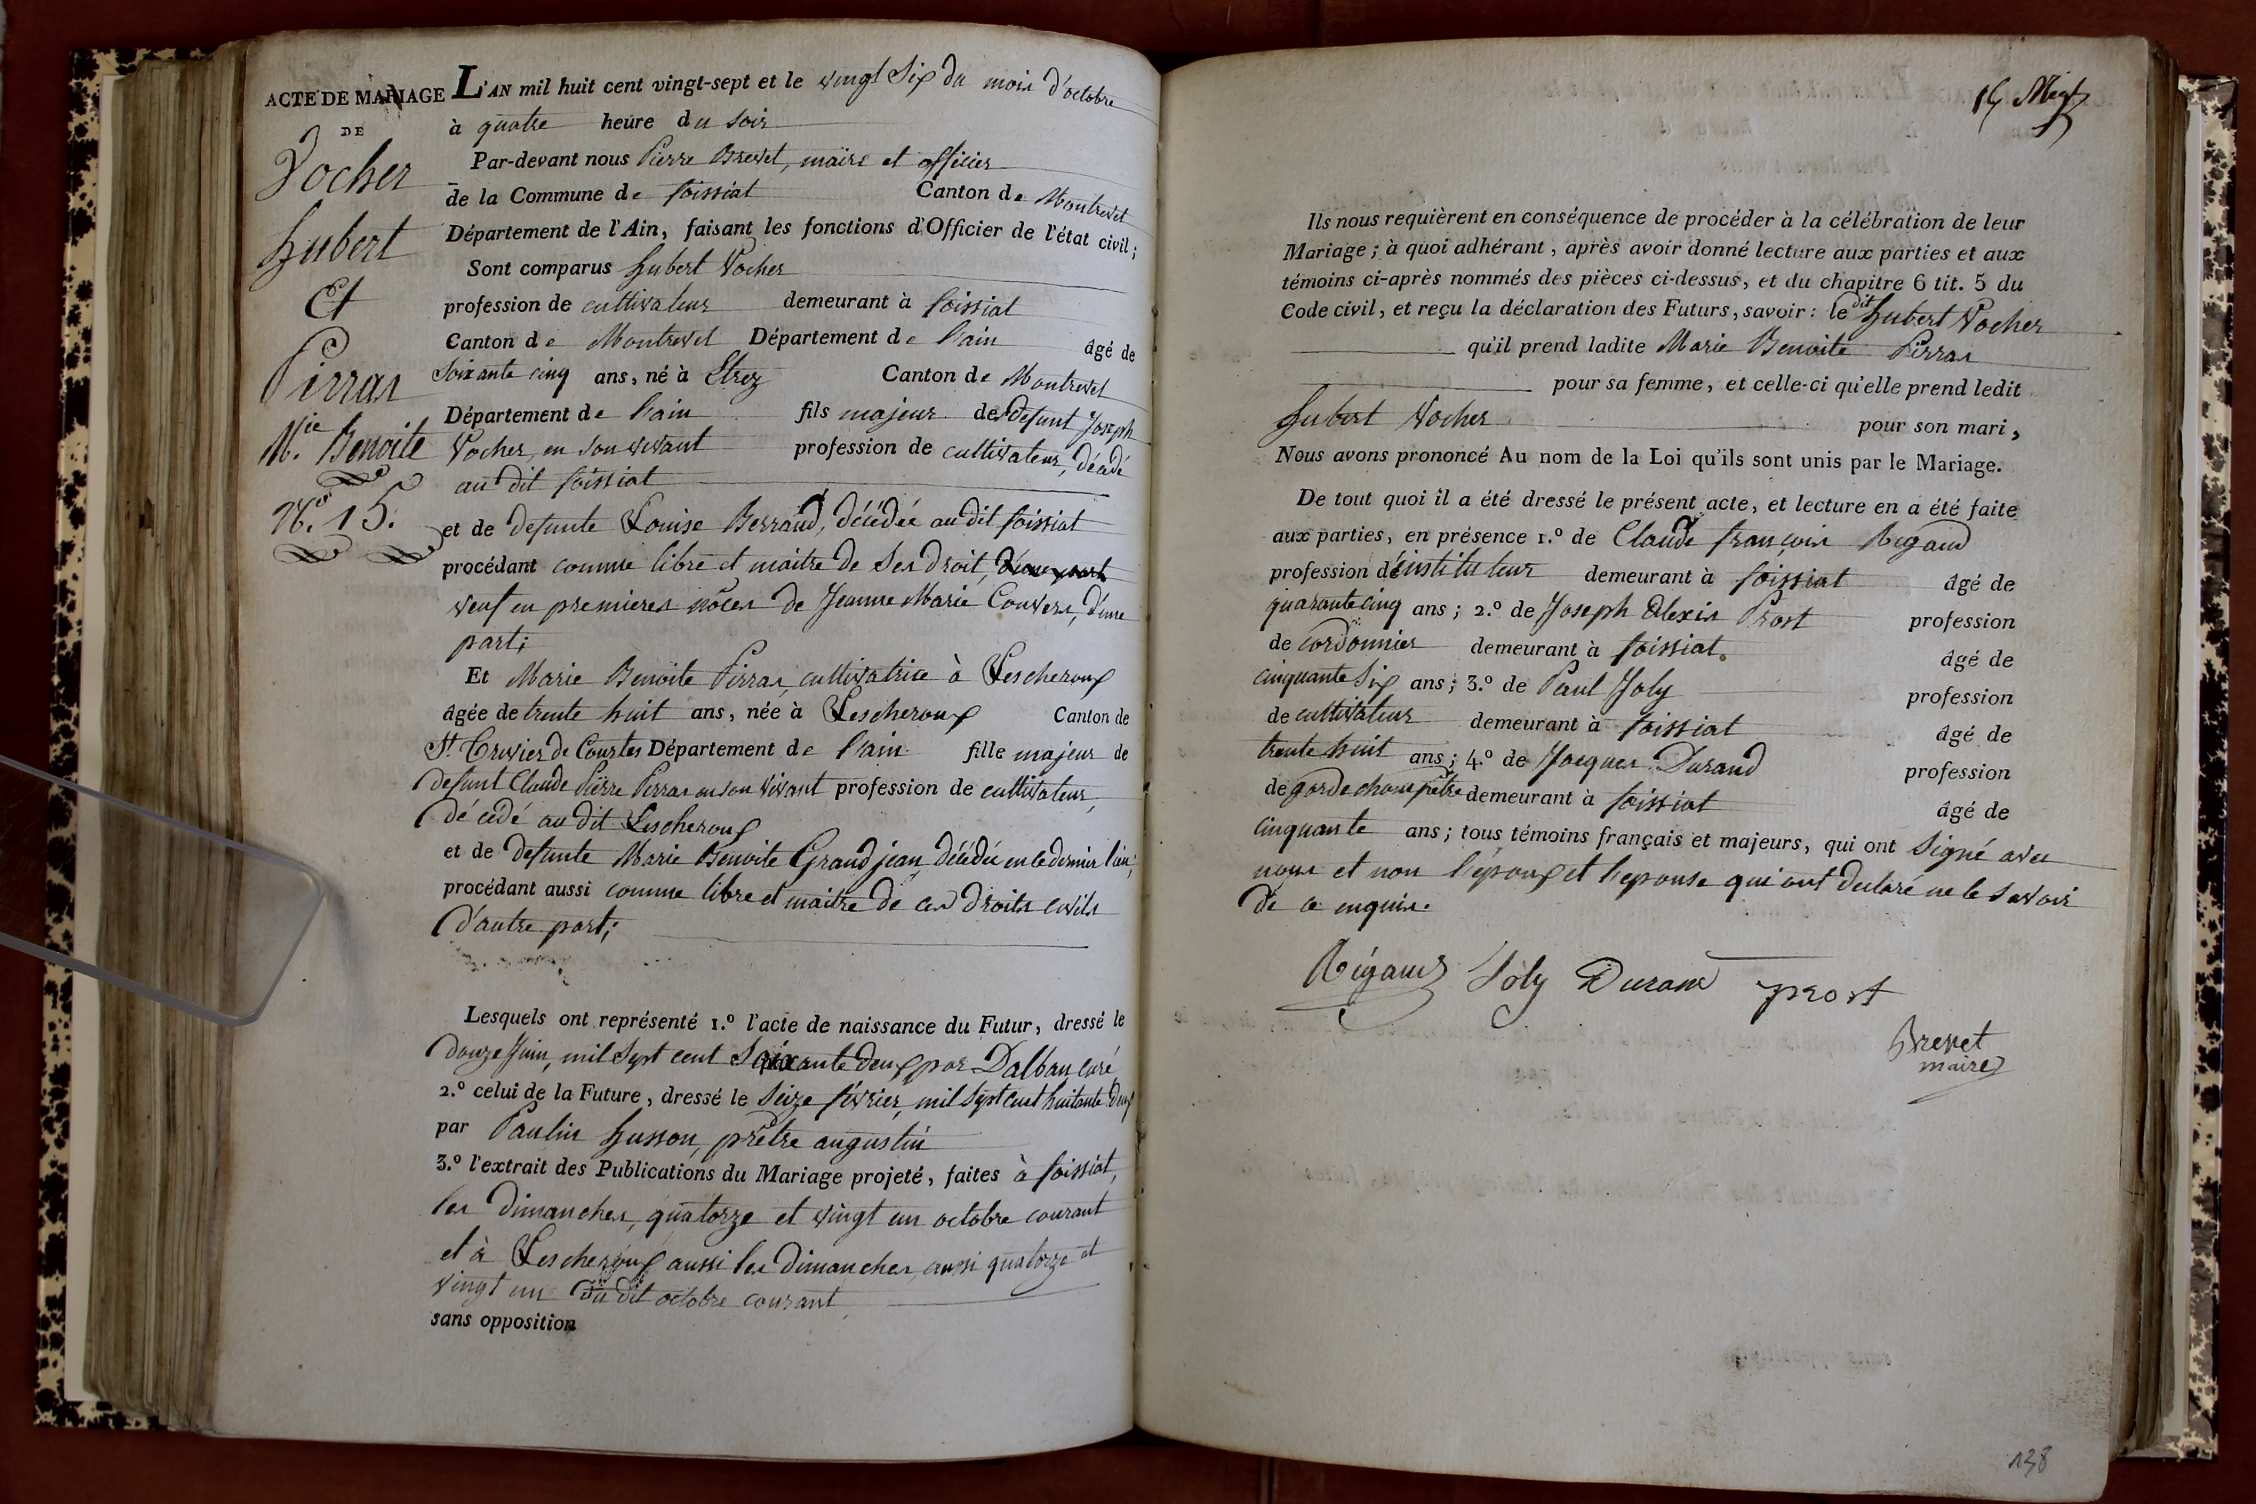 ACTE DE MARIAGE
DE
Vocher
hubert
Et
Pirras
M.ie Benoite
N.o 15.
L'AN mil huit cent vingt-sept et le vingt Six du mois d'octobre
à quatre heure du soir
Par-devant nous Pierre Brevet, maire et officier
de la Commune de foissiat Canton de Montrevel
Département de l'Ain, faisant les fonctions d'Officier de l'état civil;
Sont comparus hubert Vocher
profession de cultivateur demeurant à foissiat
Canton de Montrevel Département de l'ain âgé de
Soixante cinq ans, né à Etrez Canton de Montrevel
Département de l'ain fils majeur de defunt Joseph
Vocher, en son vivant profession de cultivateur, décédé
au dit foissiat
et de defunte Louise Berraud, décédée au dit foissiat
procédant comme libre et maitre de Ses droit, d'une part
veuf en premieres nôces de Jeanne Marie Convers, d'une
part;
Et Marie Benoite Pirras, cultivatrice à Lescheroux
âgée de trente huit ans, née à Lescheroux Canton de
St. Trivier de Courtes Département de l'ain fille majeur de
defunt Claude Pierre Pirras en son vivant profession de cultivateur,
décedé au dit Lescheroux
et de defunte Marie Benoite Grandjean, décédée en ce dernier lieu;
procédant aussi comme libre et maitre de ces droits civils
d'autre part;
Lesquels ont représenté 1.o l'acte de naissance du Futur, dressé le
douze Juin, mil Sept cent Soixante deux par Dalban curé
2.o celui de la Future, dressé le Seize février, mil Sept cent huitante deux
par Paulin husson, prêtre augustin
3.o l'extrait des Publications du Mariage projeté, faites à foissiat,
les dimanches, quatorze et vingt un octobre courant
et à Lescheroux aussi les dimanches, aussi quatorze et
vingt un du dit octobre courant
sans opposition
15 Mig
Ils nous requièrent en conséquence de procéder à la célébration de leur
Mariage; à quoi adhérant, après avoir donné lecture aux parties et aux
témoins ci-après nommés des pièces ci-dessus, et du chapitre 6 tit. 5 du
Code civil, et reçu la déclaration des Futurs, savoir: le dit hubert Vocher
qu'il prend ladite Marie Benoite Pirras
pour sa femme, et celle-ci qu'elle prend ledit
hubert Vocher pour son mari,
Nous avons prononcé Au nom de la Loi qu'ils sont unis par le Mariage.
De tout quoi il a été dressé le présent acte, et lecture en a été faite
aux parties, en présence 1.o de Claude françois Rigaud
profession d'instituteur demeurant à foissiat âgé de
quarante cinq ans; 2.o de Joseph Alexis Prost profession
de cordonnier demeurant à foissiat. âgé de
cinquante Six ans; 3.o de Paul Joly profession
de cultivateur demeurant à foissiat âgé de
trente huit ans; 4.o de Jacques Durand profession
de garde champêtre demeurant à foissiat âgé de
cinquante ans; tous témoins français et majeurs, qui ont Signé avec
nous et non l'époux et l'epouse qui ont declaré ne le Savoir
de ce enquis.
Rigaud Joly Durand prost
Brevet
maire
138